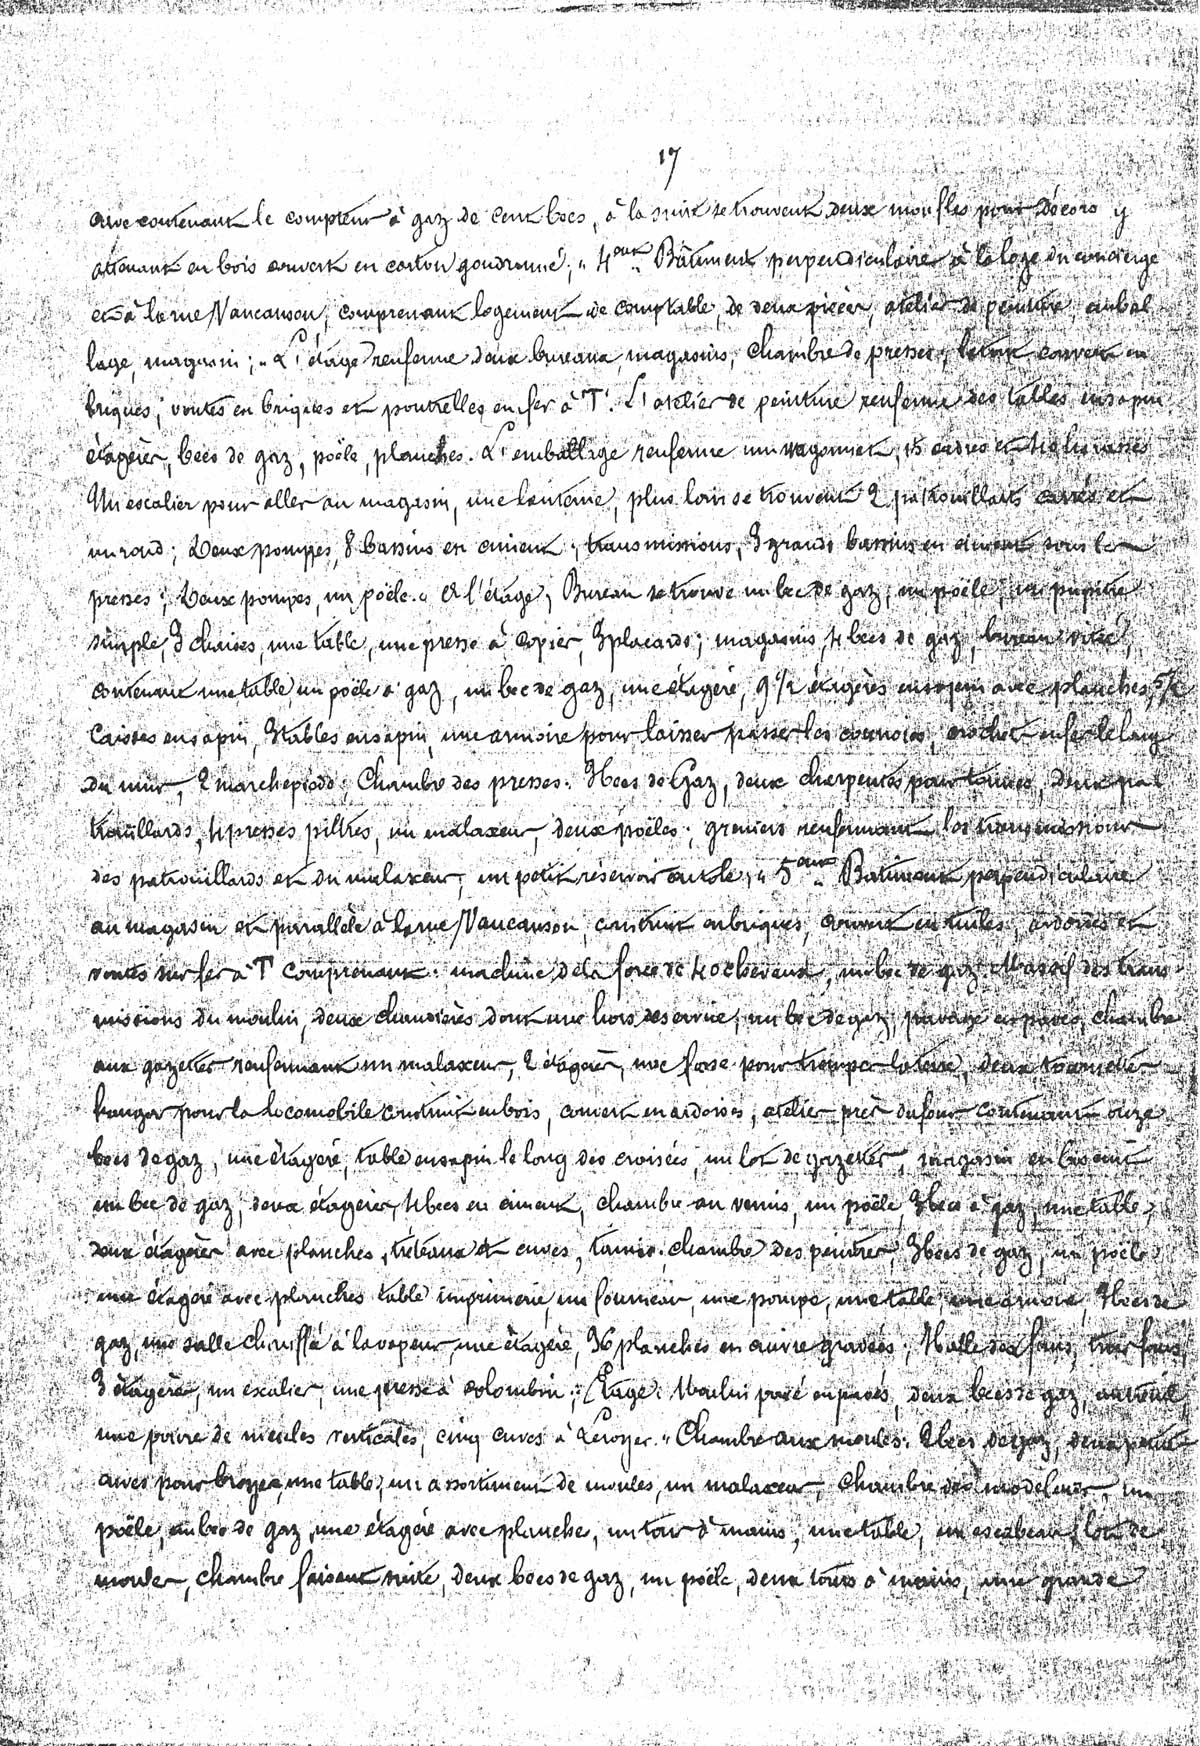 17
cave contenant le compteur à gaz de cent becs, à la suite se trouvent deux moufles pour décors y
attenant en bois couvert en carton goudronné; " 4ent " Bâtiment perpendiculaire à la loge du concierge
et à la rue Vaucanson, comprenant logement de comptable, de deux pièces, atelier de peinture, embal
lage, magasin; " L'étage renferme deux bureaux, magasins, chambre de presses, le tout couvert en
briques; voutes en briques et poutrelles en fer à T. L'atelier de peinture renferme des tables en sapin
étagères, becs de gaz, poële, planches. L'emballage renferme un wagonnet, 15 cadres et
Un escalier pour aller au magasin, une lanterne, plus loin se trouvent 2 patrouillards carrés et
un rond; Deux pompes, 8 bassins en ciment, transmissions, 3 grands bassins en ciment sous les
presses; Deux pompes, un poële. " A l'étage, Bureau se trouve un bec de gaz, un poële, un pupitre
simple, 3 chaises, une table, une presse à copier, 3 placards; magasins, 4 becs de gaz, bureau vitré,
contenant une table, un poële à gaz, un bec de gaz, une étagère, 9 1/2 étagères en sapin avec planches, 5/2
caisses en sapin, 3 tables en sapin, une armoire pour laisser passer les courroies, crochet en fer le long
du mur, 2 marchepieds; Chambre des presses: 3 becs de Gaz, deux charpentes pour tonnes, deux pa
trouillards, 4 presses filtres, un malaxeur, deux poëles; greniers renfermant les transmissions
des patrouillards et du malaxeur, un petit réservoir en tole; " 5ent " Bâtiment perpendiculaire
au magasin et parallèle à la rue Vaucanson, construit en briques, couvert en tuiles, ardoises et
voutes sur fer à T comprenant: machine de la force de 40 chevaux, un bec de gaz Massif des trans
missions du moulin, deux chaudières dont une hors de service, un bec de gaz, pavage en pavés, chambre
aux gazettes renfermant un malaxeur, 2 étagères, une fosse pour tremper la terre, deux tournettes
hangar pour la locomobile construit en bois, couvert en ardoises, atelier près du four contenant onze
becs de gaz, une étagère, table en sapin le long des croisées, un lot de gazettes, magasin en biscuit
un bec de gaz, deux étagères, 4 becs en ciment, chambre au vernis, un poële, 3 becs à gaz, une table,
deux étagères avec planches, tréteaux et cuves, tamis, chambre des peintres, 3 becs de gaz, un poële
une étagère avec planches table imprimerie, un fourneau, une pompe, une table, une armoire, 3 becs de
gaz, une salle chauffée à la vapeur une étagère, 36 planches en cuivre gravées; Halle des fours, trois fours,
3 étagères, un escalier, une presse à colombin; Etage: Moulin pavé en pavés, deux becs de gaz, un treuil
une paire de meules verticales, cinq cuves à " Chambre aux moules: 2 becs de gaz, deux petites
cuves pour broyer, une table, un assortiment de moules, un malaxeur, chambre des modeleurs, un
poële, un bec de gaz, une étagère avec planche, un tour à mains, une table, un escabeau, lot de
moules, chambre faisant suite, deux becs de gaz, un poële, deux tours à mains, une grande